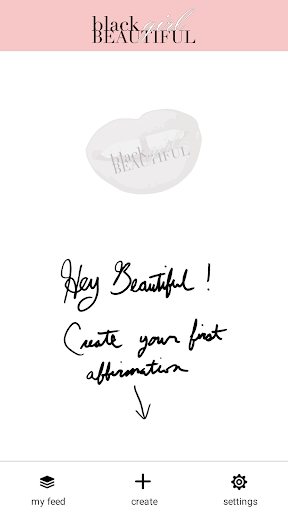 black girl
BEAUTIFUL
black
BEAUTIFUL
Hey Beautiful!
Create your first
affirmation
my feed create settings